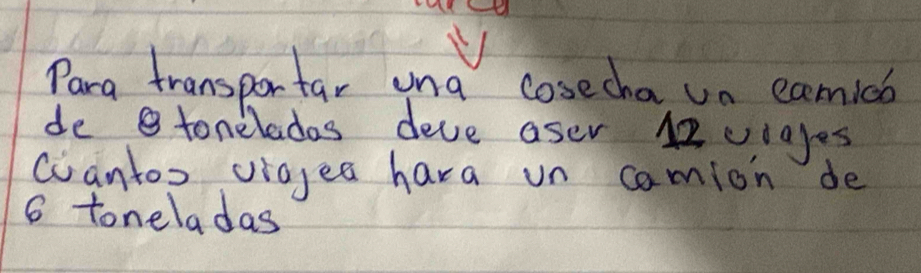 Para transportar una cosecha un camión
de 8 toneladas deve aser 12 viajes
Cuantos viajes hara un camión de
6 toneladas